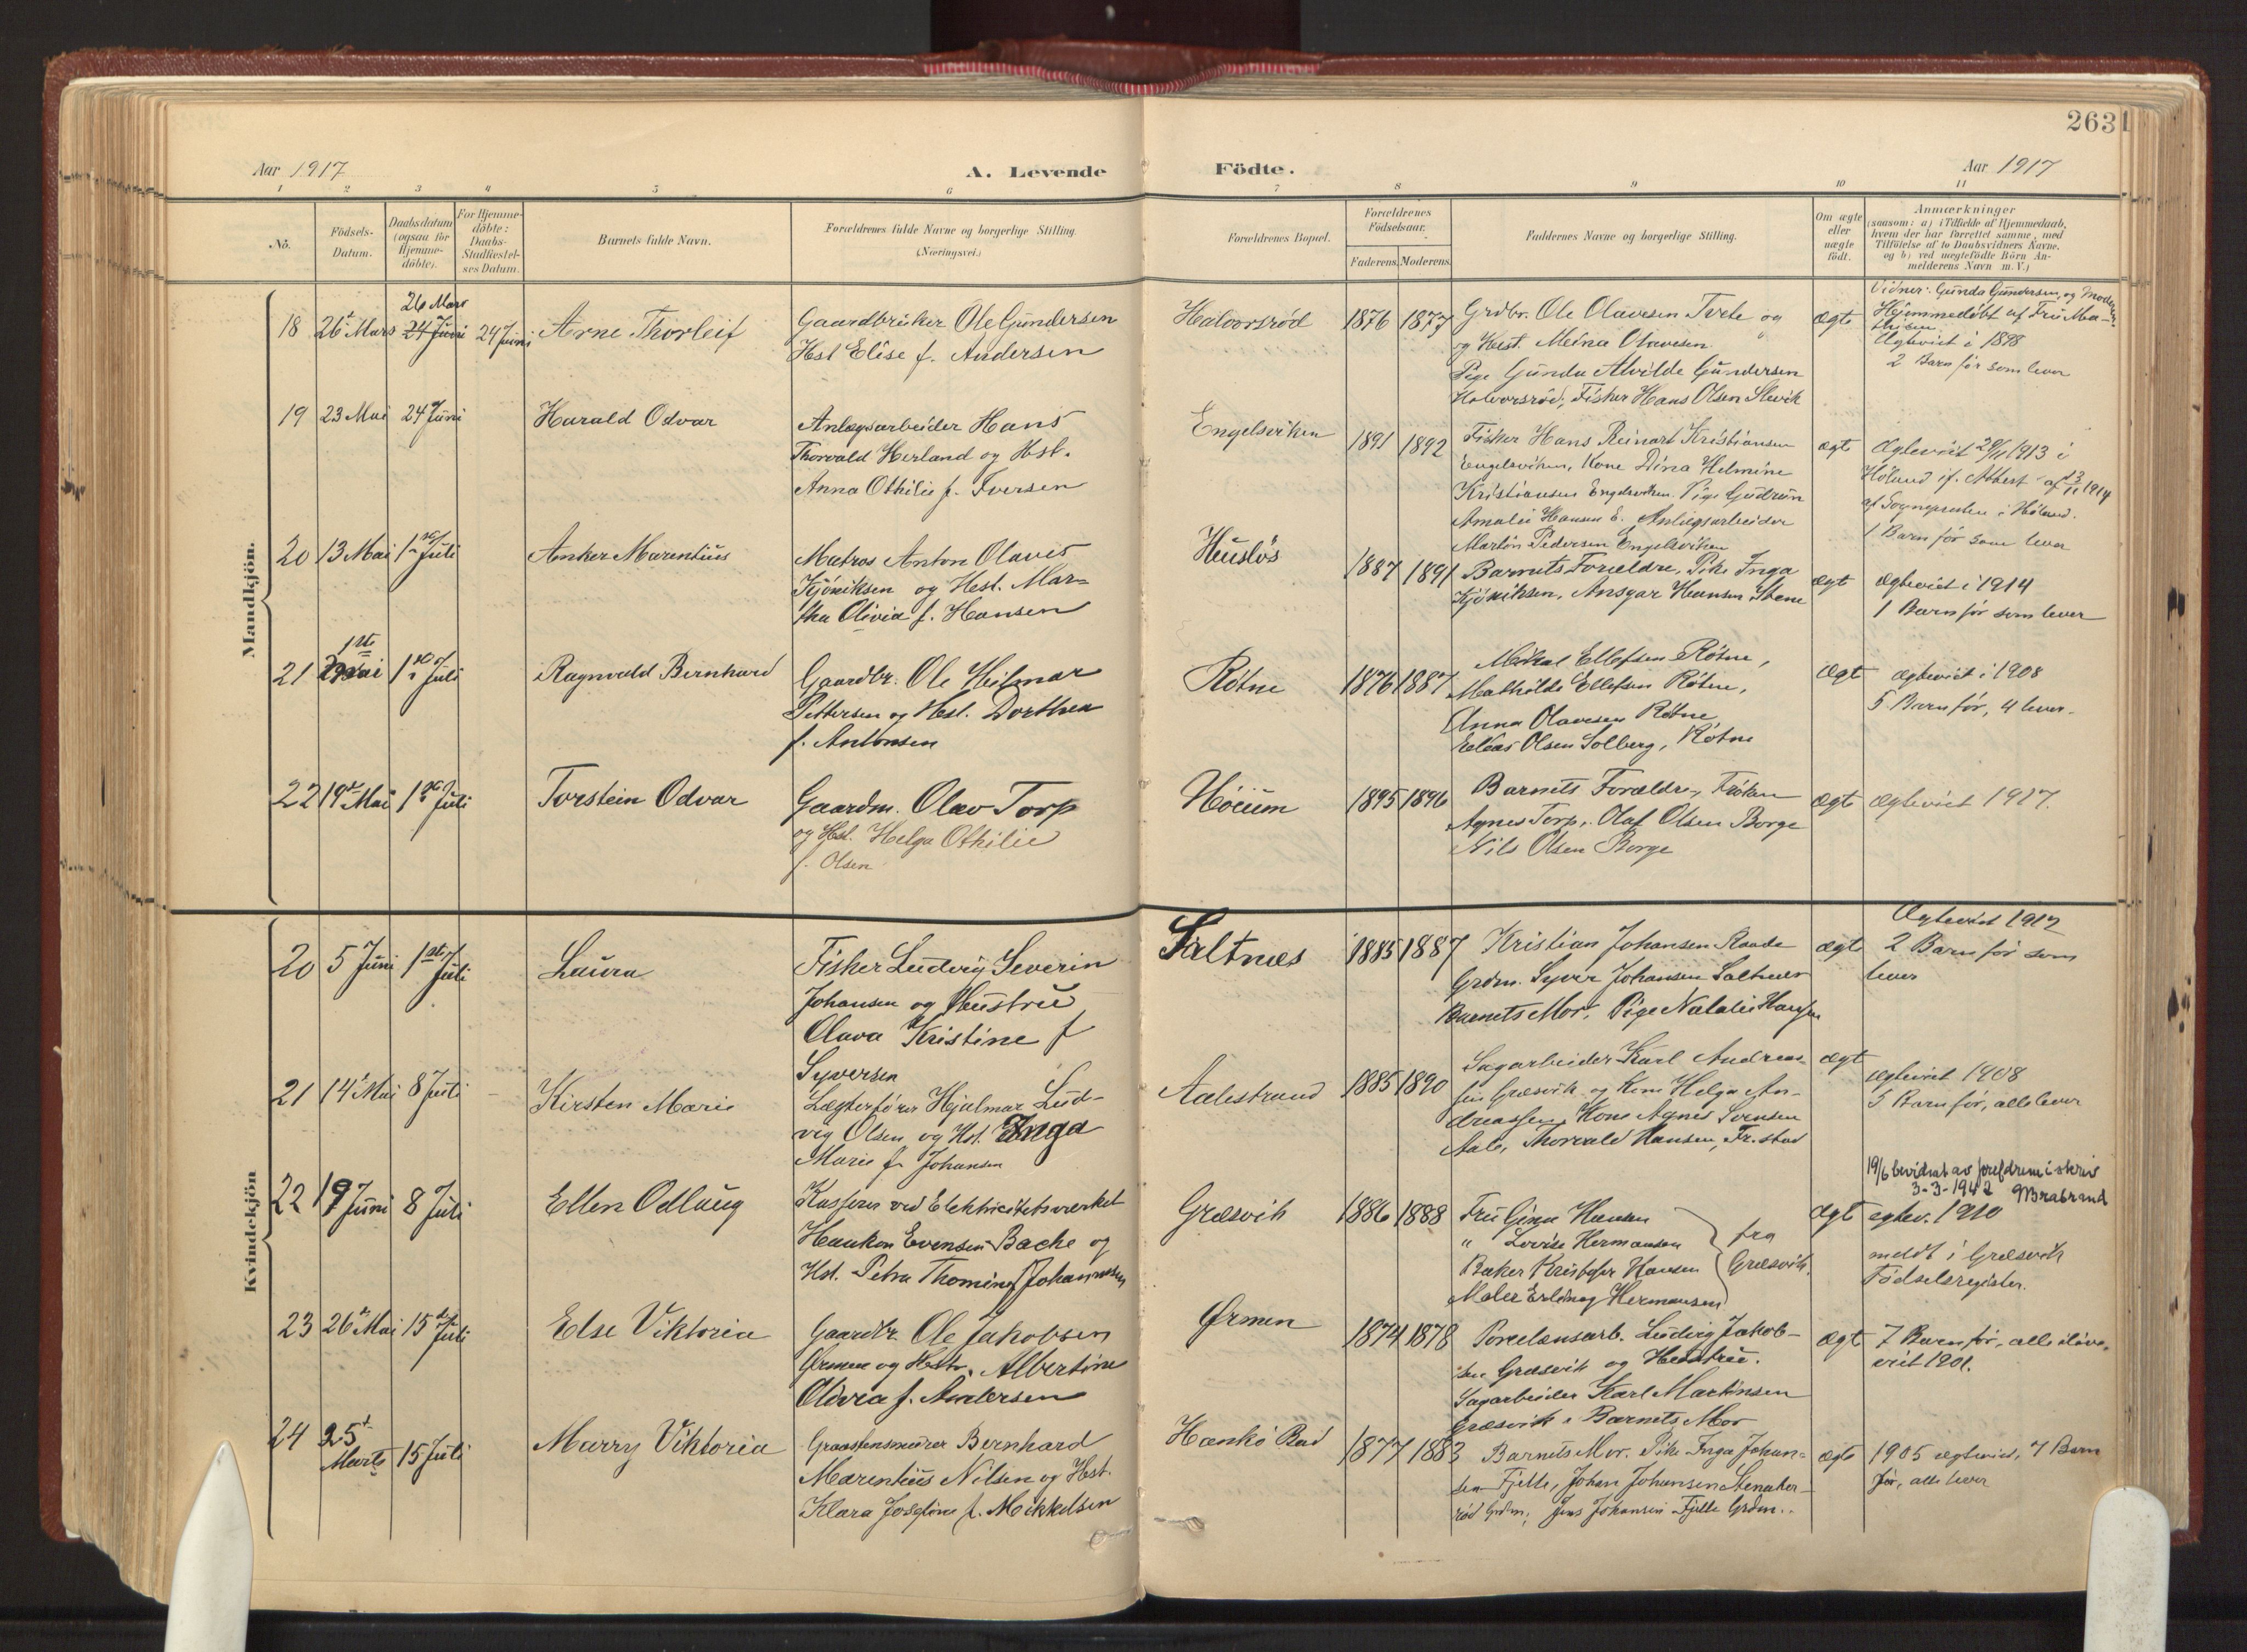 263
Aar 1917
A. Levende
Födte.
Aar 1917
1 2 3 4 5 6 7 8 9 10 11
Nö.
Födsels-
Datum.
Daabsdatum
(ogsaa for
Hjemme-
döbte).
For Hjemme-
döbte:
Daabs-
Stadfæstel-
ses Datum.
Barnets fulde Navn.
Forældrenes fulde Navne og borgerlige Stilling
(Næringsvei.)
Forældrenes Bopæl.
Forældrenes
Födselsaar.
Faderens. Moderens.
Faddernes Navne og borgerlige Stilling.
Om ægte
eller
uægte
födt.
Anmærkninger
(saasom: a) i Tilfælde af Hjemmedaab,
hvem der har forrettet samme, med
Tilföielse af to Daabsvidners Navne.
og b) ved uægtefödte Börn An-
melderens Navn m. V.)
Mandkjön.
18 26 Mars
26 Mars
24 Juni
24 Juni
Arne Thorleif
Gaardbruker Ole Gundersen
Hst Elise f. Andersen
Halvorsrød
1876 1877
Grdbr. Ole Olavesen Torte og
og Hust. Meina Olavesen.
Pige Gunda Alvilde Gundersen
Halvorsrød, Fisker Hans Olsen Slevik
ægte
Vidner: Gunda Gundersen, og Moderen.
Hjemmedøbt af Fru Ma-
thisen
Ægteviet i 1898
2 Barn før som lever
19 23 Mai 24 Juni
Harald Odvar
Anlægsarbeider Hans
Thorvald Herland og Hst.
Anna Othilie f. Iversen
Engelsviken
1891 1892
Fisker Hans Reinart Kristiansen
Engelsviken, Kone Dina Helmine
Kristiansen Engelsviken. Pige Gudrun
Amalie Hansen E. Anlægsarbeider
Martin Pedersen Engelsviken
ægt
Ægteviet 29/11 1913 i
Høland if. Attest af 13/11 1914
af Sognepresten i Høland.
1 Barn før som lever
20 13 Mai 1 Juli
Anker Marentius
Matros Anton Olaves
Kjöniksen og Hest. Mar-
tha Olivia f. Hansen
Husløs
1887 1891
Barnets Forældre, Pike Inga
Kjöniksen, Ansgar Hansen Stene
ægt
ægteviet i 1914
1 Barn før som lever
21
1ste
Mai 1 Juli
Ragnvald Bernhard
Gaardbr. Ole Hilmar
Pettersen og Hst. Dorthea
f. Antonsen
Røtne
1876 1887
Mikal Ellefsen Røtne,
Mathilde Ellefsen Røtne,
Anna Olavesen Røtne
Olsen Solberg, Røtne
ægt
ægteviet i 1908
5 Barn før, 4 lever.
22 19 Mai 1 Juli
Torstein Odvar
Gaardm. Olav Torp
og Hst. Helga Othilie
f. Olsen
Høium
1895 1896
Barnets Forældre, Frøken
Agnes Torp, Olaf Olsen Borge
Nils Olsen Borge
ægt
ægteviet 1917.
Kvindekjön
20 5 Juni 1ste Juli
Laura
Fisker Ludvig Severin
Johansen og Hustru
Olava Kristine f
Syversen
Saltnes
1885 1887
Kristian Johansen Raade
Grdm. Syver Johansen Saltnes
Barnets Mor, Pige Natalie Hansen
ægt
Ægteviet 1912
2 Barn før som
lever
21 14 Mai 8 Juli
Kirsten Marie
Lægterfører Hjalmar Lud-
vig Olsen og Hst. Inga
Marie f. Johansen
Aalestrand
1885 1890
Sagarbeider Karl Andreas-
sen Græsvik og Kone Helga An-
dreassen, Kone Agnes Sørensen
Aale, Thorvald Hansen, Fr.stad
ægt
ægteviet 1908
5 Barn før, alle lever
22 19 Juni 8 Juli
Ellen Odlaug
Kasserer ved Elektricitetsverket
Haakon Evensen Bache og
Hst. Petra Thomine f Johannesen
Græsvik
1886 1888
Fru Gina Hansen
" Lovise Hermansen
Baker Kristofer Hansen
Maler Erling Hermansen
fra
Græsvik.
ægt
19/6 bevidnet av foreldrene i skriv
3-3-1942 Brabrand
egtev. 1910
meldt i Græsvik
Fødselsregister.
23 26 Mai 15 Juli
Else Viktoria
Gaardbr. Ole Jakobsen
Ørmen og Hstr. Albertine
Olivia f. Andersen
Ørmen
1874 1878
Porcelænsarb. Ludvig Jakob-
sen Græsvik og Hustru.
Sagarbeider Karl Martinsen
Græsvik. Barnets Mor
ægt
7 Barn før, alle ilive.
viet 1901.
24 25
Marts 15 Juli
Marry Viktoria
Graastensmurer Bernhard
Marentius Nilsen og Hst.
Klara Josefine f. Mikkelsen
Hankø Bad
1877 1883
Barnets Mor. Pike Inga Johan-
sen Fjelle, Johan Johansen Stenaker-
rød Grdm, Jens Johansen Fjelle Grdm.
ægt
1905 ægteviet, 7 Barn
før, alle lever